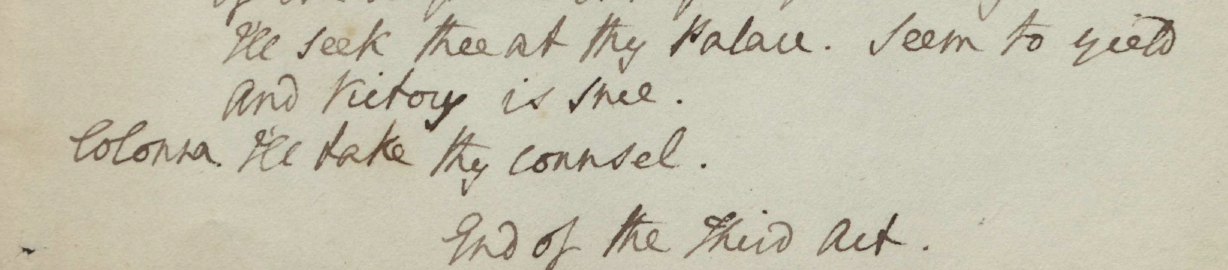 I'll seek thee at thy Palace. Seem to yield
And Victory is sure.
Colonna. I'll take thy counsel.
End of the Third Act.